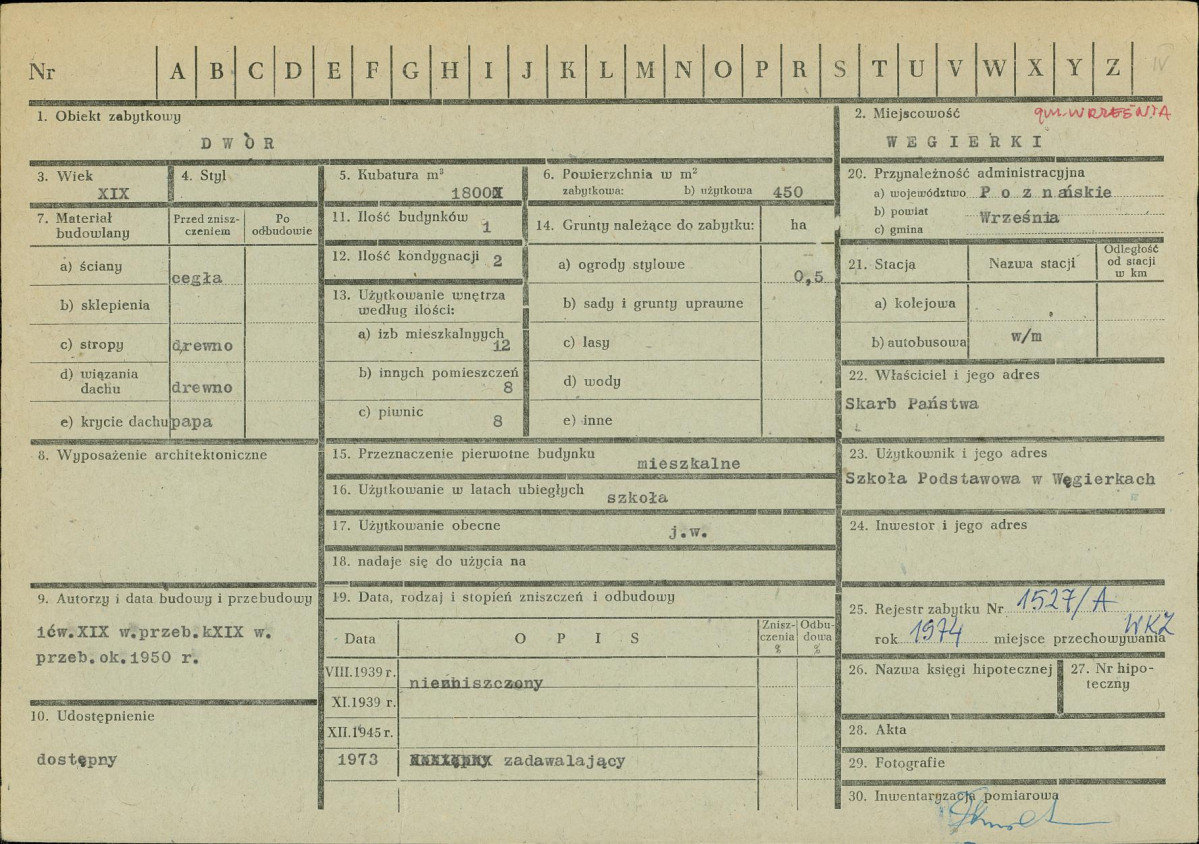 Nr A B C D E F G H I J K L M N O P R S T U V W X Y Z IV
1. Obiekt zabytkowy
DWÒR
2. Miejscowość gm. WRZEŚNIA
WEGIERKI
3. Wiek
XIX
4. Styl
5. Kubatura m³
1800
6. Powierzchnia w m²
zabytkowa: b) użytkowa 450
7. Materiał budowlany
Przed zniszczeniem
Po odbudowie
a) ściany cegła
b) sklepienia
c) stropy drewno
d) wiązania dachu drewno
e) krycie dachu papa
8. Wyposażenie architektoniczne
9. Autorzy i data budowy i przebudowy
1ćw.XIX w.przeb.kXIX w.
przeb.ok.1950 r.
10. Udostępnienie
dostępny
11. Ilość budynków 1
12. Ilość kondygnacji 2
13. Użytkowanie wnętrza
według ilości:
a) izb mieszkalnyych
12
b) innych pomieszczeń
8
c) piwnic 8
14. Grunty należące do zabytku: ha
a) ogrody stylowe 0,5
b) sady i grunty uprawne
c) lasy
d) wody
e) inne
15. Przeznaczenie pierwotne budynku mieszkalne
16. Użytkowanie w latach ubiegłych szkoła
17. Użytkowanie obecne j.w.
18. nadaje się do użycia na
19. Data, rodzaj i stopień zniszczeń i odbudowy
Data OPIS Zniszczenia % Odbudowa %
VIII.1939 r. niezniszczony
XI.1939 r.
XII.1945 r.
1973 zadawalający
20. Przynależność administracyjna
a) województwo Poznańskie
b) powiat Września
c) gmina
21. Stacja Nazwa stacji Odległość od stacji w km
a) kolejowa
b) autobusowa w/m
22. Właściciel i jego adres
Skarb Państwa
23. Użytkownik i jego adres
Szkoła Podstawowa w Węgierkach
24. Inwestor i jego adres
25. Rejestr zabytku Nr 1527/A
rok 1974 miejsce przechowywania WKZ
26. Nazwa księgi hipotecznej
27. Nr hipoteczny
28. Akta
29. Fotografie
30. Inwentaryzacja pomiarowa